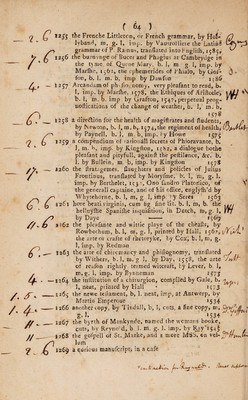 ( 64 )
2..6 1255 the Frenche Littleton, or French grammar, by Hol-
lyband, m. g. l. imp. by Vautrollier the Latine
grammar of P. Ramus, translated into English, 1585,
7..6 1256 the burnynge of Bucer and Phagius at Cambridge in
the tyme of Quene Mary, b. l. m g l, imp. by
Marshe, 1562, the ephemerides of Phialo, by Gos-
son, b. l. m. b. imp by Dawson 1586
4.- 1257 Arcandum of phisonomy, very pleasant to read, b.
l, imp. by Marshe, 1578, the Ethiques of Aristotle,
b l. m. b. imp by Grafton, 1547, perpetual prog-
nostications of the change of weather, b. l. m. b.
1578
6.. 1258 a direction for the health of magistrates and students,
by Newton, b l, m b, 1574, the regiment of health,
by Paynell, b l, m b, imp by Howe 1575
2..6 1259 a compendium of rationall secrets of Phioravante, b.
l, m b, imp by Kingston, 1582, a dialogue bothe
pleasant and pityfull, againt the pestilence, &c. b.
l by Bullein, m b, imp by Kingston 1573
17.- 1260 the strategemes, slaughters and policies of Julius
Frontinus, translated by Morysine, b l, m g l.
imp by Berthelet, 1539, Ono sandro Platonico, of
the general captaine, and of his office, englyssh'd by
Whytehorne, b l, m g l, imp by Seres 1563
2..6 1261 here begi virginis, cum fig fine lit. b l, m b, the
hellysshe Spanishe inquisition, in Dutch, m g l,
by Daye 1569
11..6 1262 the pleasaunt and wittie playe of the cheasts, by
Rowbothum, b l, m g l, printed by Hall, 1562,
the arte or crafte of rhetoryke, by Cox, b l, m g,
l, imp by Redman
6.. 1263 the arte of chiromancy and phisognomy, translated
by Withers, b l, m g l. by Day, 1558, the arte
of reason rightly termed witcraft, by Lever, b l,
m, g l, imp. by Bynneman 1573
4.- 1264 the institution of a chirurgion, compiled by Gale, b.
l, neat, printed by Hall 1563
1..5..- 1265 the newe testament, b l, neat, imp, at Antwerp, by
Martin Emperour 1534
1..4.- 1266 another copy, by Tindall, b l, cuts, a fine copy, m,
g. l, 1534
11..- 1267 the byrth of Mankynde, named the womans booke,
cuts, by Reynold, b l, m. g. l. imp. by Ray 1545
1268 the gospell of St. Marke, and a more MSS. on vel-
lum
2..6 1269 a curious manuscript, in a case